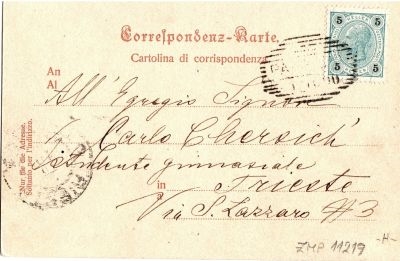 Correspondenz-Karte.
Cartolina di corrispondenza
5 5
5 5
An
Al
All' Egregio Signor
Carlo Chersich'
studente ginnasiale
in
Trieste
Via S. Lazzaro #3
Nur für die Adresse.
Soltanto per l'indirizzo.
ZMP 11217
-H-